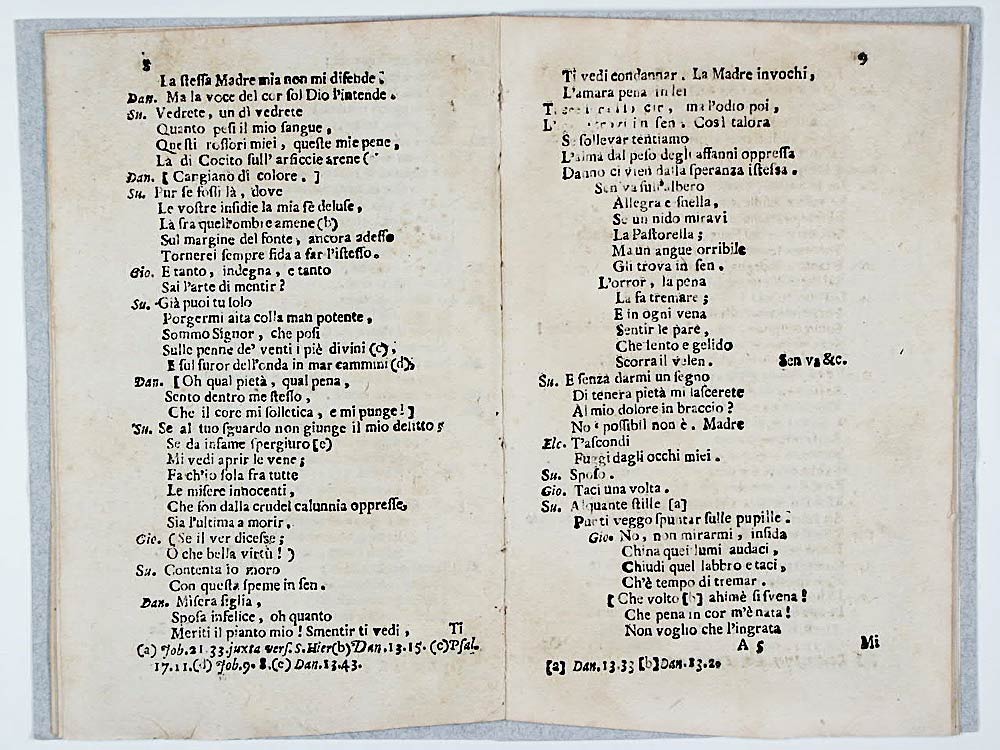 8
La stessa Madre mia non mi difende.
Dan. Ma la voce del cor sol Dio l'intende.
Su. Vedrete, un dì vedrete
Quanto pesi il mio sangue,
Questi rossori miei, queste mie pene,
Là di Cocito sull'arsiccie arene (
Dan. [ Cargiano di colore. ]
Su. Pur se fossi là, dove
Le vostre insidie la mia fè deluse,
Là fra quell'ombre amene (b)
Sul margine del fonte, ancora adesso
Tornerei sempre fida a far l'istesso.
Gio. E tanto, indegna, e tanto
Sai l'arte di mentir?
Su. Già puoi tu solo
Porgermi aita colla man potente,
Sommo Signor, che posi
Sulle penne de' venti i piè divini (c),
E sul furor dell'onda in mar cammini (d),
Dan. [Oh qual pietà, qual pena,
Sento dentro me stesso,
Che il core mi solletica, e mi punge!]
Su. Se al tuo sguardo non giunge il mio delitto;
Se da infame spergiuro [e)
Mi vedi aprir le vene;
Fa ch'io sola fra tutte
Le misere innocenti,
Che son dalla crudel calunnia oppresse,
Sia l'ultima a morir.
Gio. (Se il ver dicesse;
O che bella virtù! )
Su. Contenta io moro
Con questa speme in sen.
Dan. Misera figlia,
Sposa infelice, oh quanto
Meriti il pianto mio! Smentir ti vedi,
Ti
(a) Job. 21. 33. juxta vers. S. Hier (b) Dan. 13. 15. (c) Psal.
17. 11. (d) Job. 9. 8. (e) Dan. 13. 43.
9
Ti vedi condannar. La Madre invochi,
L'amara pena in lei
ma l'odio poi,
in sen. Così talora
Se sollevar tentiamo
L'alma dal peso degli affanni oppressa
Danno ci vien dalla speranza istessa.
Sen va sull'albero
Allegra e snella,
Se un nido miravi
La Pastorella;
Ma un angue orribile
Gli trova in sen.
L'orror, la pena
La fa tremare;
E in ogni vena
Sentir le pare,
Che lento e gelido
Scorra il velen. Sen va &c.
Su. E senza darmi un segno
Di tenera pietà mi lascerete
Al mio dolore in braccio?
No possibil non è. Madre
Elc. T'ascondi
Fuggi dagli occhi miei.
Su. Sposo.
Gio. Taci una volta.
Su. Alquante stille [a]
Pur ti veggo spuntar sulle pupille.
Gio. No, non mirarmi, infida
China quei lumi audaci,
Chiudi quel labbro e taci,
Ch'è tempo di tremar.
[ Che volto [b] ahimè si svena!
Che pena in cor m'è nata!
Non voglio che l'ingrata
A 5 Mi
[a] Dan. 13. 33 [b] Dan. 13. 2.